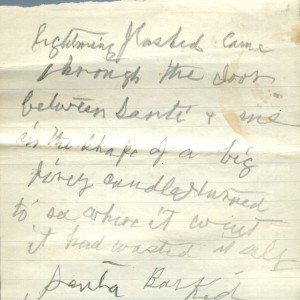 lightning flashed came
through the door
between Santé & me
in the shape of a big
firey candle I turned
to see where it went
it had wasted it self
Santa Bark'd